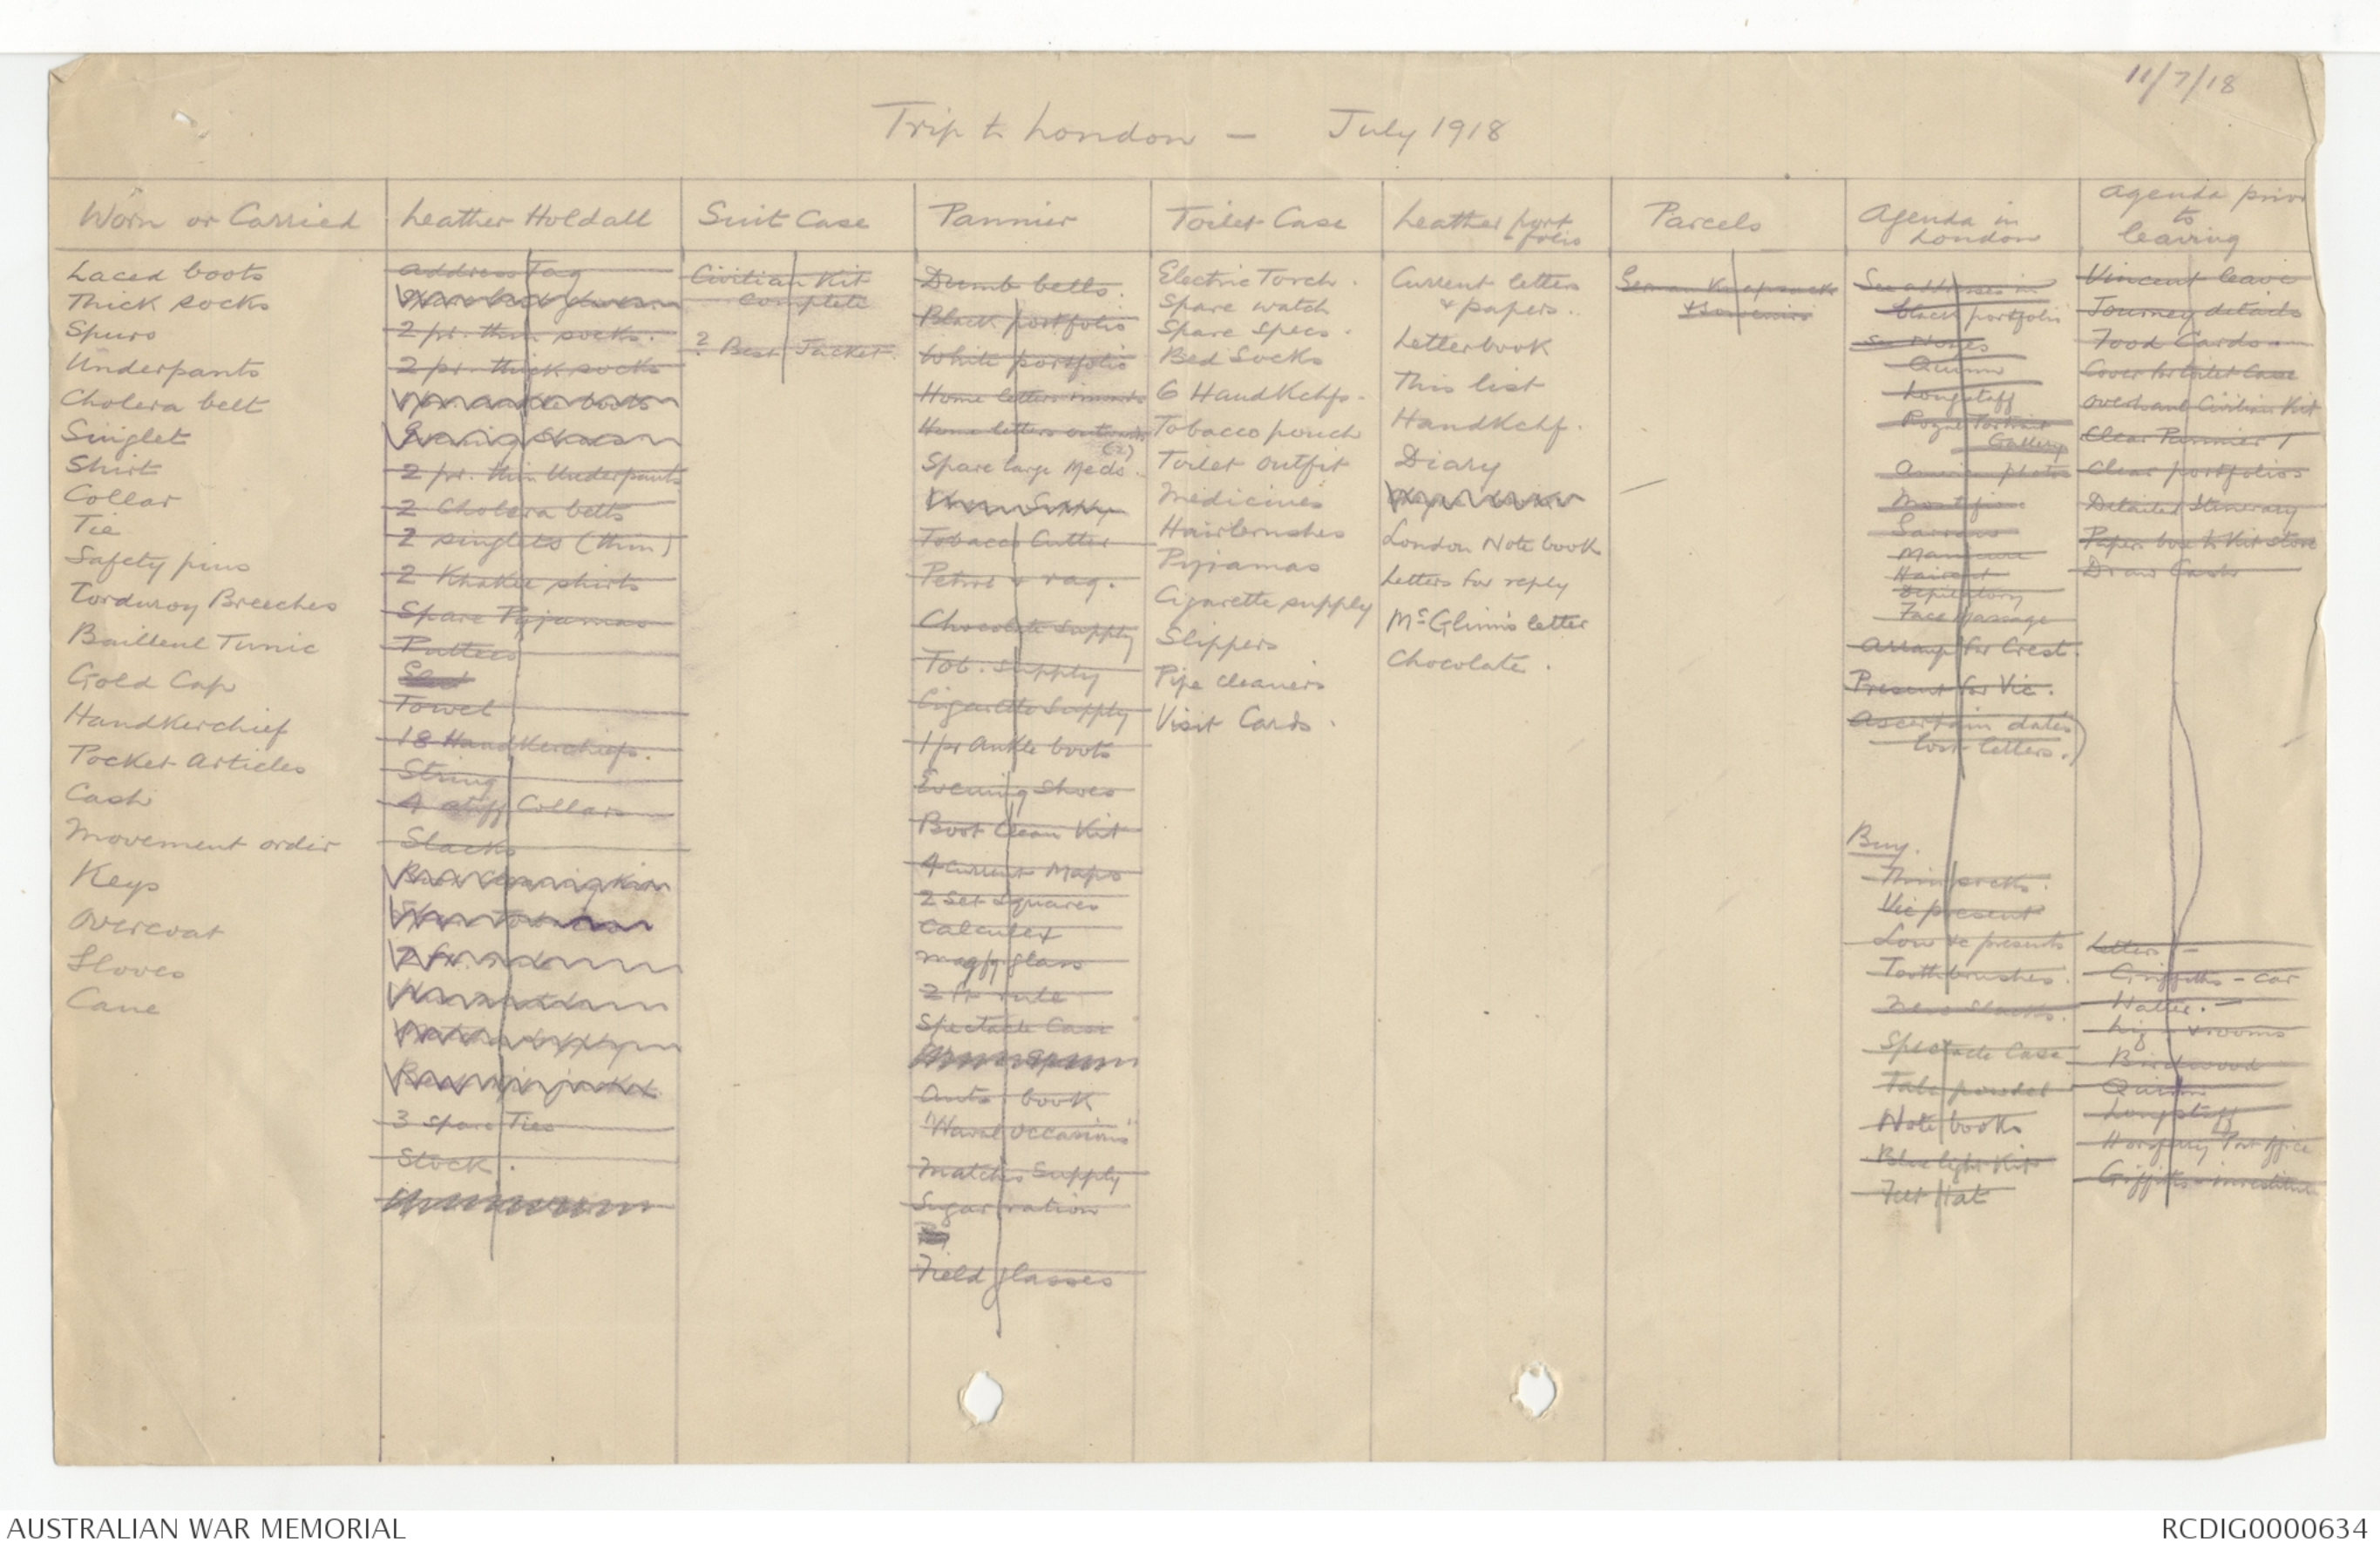 11/7/18
Trip to London - July 1918
Worn or Carried
Laced boots
Thick socks
Spurs
Underpants
Cholera belt
Singlet
Shirt
Collar
Tie
Safety pins
Corduroy Breeches
Bailleul Tunic
Gold Cap
Handkerchief
Pocket Articles
Cash
Movement order
Keys
Overcoat
Gloves
Cane
Leather Holdall
Address Tag
2 pr. thin socks.
2 pr. thick socks
2 pr. thin Underpants
2 Cholera belts
2 singlets (thin)
2 Khakee shirts
Spare Pyjamas
Puttees
Towel
18 Handkerchiefs.
String
4 stiff Collars
Slacks
3 spare Ties
Stock.
Suit Case
Civilian Kit
complete
? Best Jacket.
Pannier
Dumb bells.
Black portfolio
White portfolio
Home letters inwards
Home letters outwards
(2)
Spare large Meds.
Tobacco Cutter
Petrol & rag.
Chocolate Supply
Tob. Supply
Cigarette Supply
1 pr Ankle boots
Evening Shoes
Boot Clean Kit
4 Current Maps
2 Set Squares
Calculex
Magfy glass
2 ft rule
Spectacle Case
Auto. book
"Naval Occasions"
Matches Supply
Sugar ration
Field glasses
Toilet Case
Electric Torch.
Spare watch
Spare Specs.
Bed Socks
6 Handkchfs.
Tobacco pouch
Toilet outfit
Medicines
Hairbrushes
Pyjamas
Cigarette supply
Slippers
Pipe cleaners
Visit Cards.
Leather port
-folio
Current letters
& papers.
Letterbook
This list
Handkchf.
Diary
London Note book
Letters for reply
McGlinn's letter
Chocolate.
Parcels
& Souvenirs
Agenda in
London
See addresses in
black portfolio
See Notes
Quinn
Longstaff
Portrait
Gallery
photos
Manicure
Haircut
Depilatory
Face Massage
Arrange for Crest.
Present for Vic.
Ascertain dates
lost letters.)
Buy.
Thin socks.
Vic present
presents
Toothbrushes.
New Slacks.
Spectacle Case
Talc powder
Note books
Blue light Kit
Felt Hat
Agenda prior
to
leaving
Vincent leave
Journey details
Food Cards.
Cover for Toilet Case
Overhaul Civilian Kit
Clear Pannier 1
Clear portfolios
Detailed Itinerary
Paper box to Kit store
Draw Cash
Letters -
Griffiths - car
Hatter. -
& rooms
Birdwood
Quinn
Longstaff
Horseferry Post Office
Griffiths - investiture
AUSTRALIAN WAR MEMORIAL
RCDIG0000634